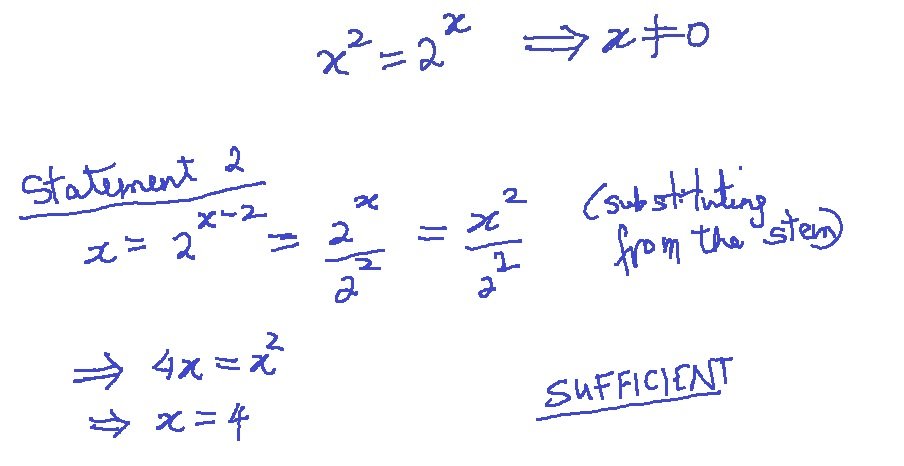 x² = 2ˣ ⟹ x ≠ 0
Statement 2
x = 2ˣ⁻² = 2ˣ/2² = x²/2² (substituting from the stem)
⟹ 4x = x²
⟹ x = 4
SUFFICIENT